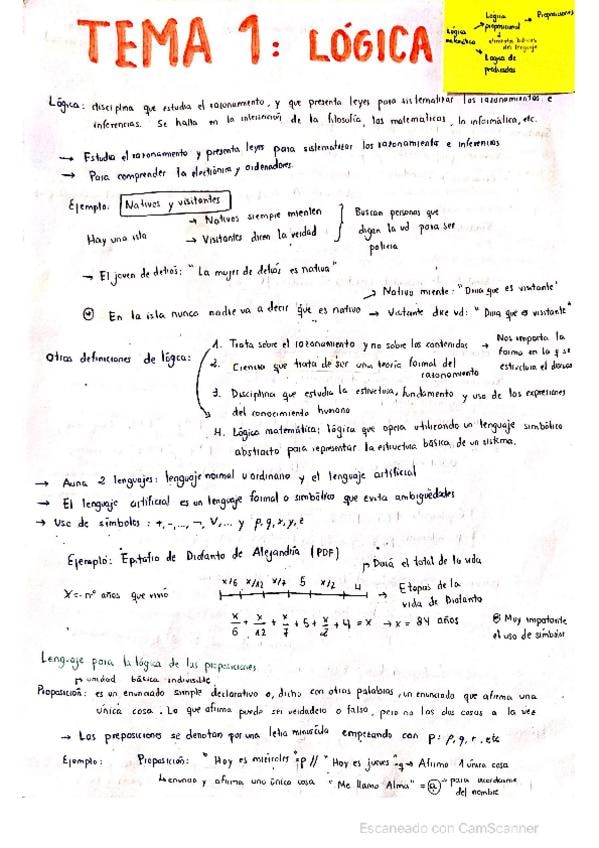 TEMA 1: LÓGICA
Lógica matemática
Lógica proposicional → Proposiciones
elementos básicos del lenguaje
Logica de predicados
Lógica: disciplina que estudia el razonamiento, y que presenta leyes para sistematizar los razonamientos e
inferencias. Se halla en la intersección de la filosofía, las matematicas, la informática, etc.
→ Estudia el razonamiento y presenta leyes para sistematizar los razonamiento e inferencias
→ Para comprender la electrónica y ordenadores.
Ejemplo: Nativos y visitantes
Hay una isla
→ Nativos siempre mienten
→ Visitantes dicen la verdad
Buscan personas que
digan la vd para ser
policia
→ El joven de detrás: "La mujer de detrás es nativa"
→ Nativo miente: "Dira que es visitante"
En la isla nunca nadie va a decir que es nativo → Visitante dice vd: "Dira que es visitante"
Otras definiciones de lógica:
1. Trata sobre el razonamiento y no sobre los contenidos → Nos importa la
forma en la q se
estructura el
2. Ciencia que trata de ser una teoría formal del
razonamiento
3. Disciplina que estudia la estructura, fundamento y uso de las expresiones
del conocimiento humano
4. Lógica matemática: lógica que opera utilizando un lenguaje simbólico
abstracto para representar la estructura básica de un sistema.
→ Auna 2 lenguajes: lenguaje normal u ordinario y el lenguaje artificial
→ El lenguaje artificial es un lenguaje formal o simbólico que evita ambigüedades
→ Uso de símbolos: +, -, ..., ¬, V, ... y p, q, x, y, z
Ejemplo: Epitafio de Diofanto de Alejandría (PDF)
→ Dará el total de la vida
X = nº años que vivió
x/6 x/12 x/7 5 x/2 4 → Etapas de la
vida de Diofanto
x/6 + x/12 + x/7 + 5 + x/2 + 4 = x → x = 84 años
Muy importante
el uso de símbolos
Lenguaje para la lógica de las proposiciones
→ unidad básica indivisible
Proposición: es un enunciado simple declarativo o, dicho con otras palabras, un enunciado que afirma una
única cosa. Lo que afirma puede ser verdadero o falso, pero no las dos cosas a la vez
→ Las preposiciones se denotan por una letra minuscula empezando con p: p, q, r, etc
Ejemplo: Proposición: "Hoy es miércoles" = p // "Hoy es jueves" = q → Afirmo 1 única cosa
→ enuncia y afirma una única cosa "Me llamo Alma" = a → para acordarme
del nombre
Escaneado con CamScanner